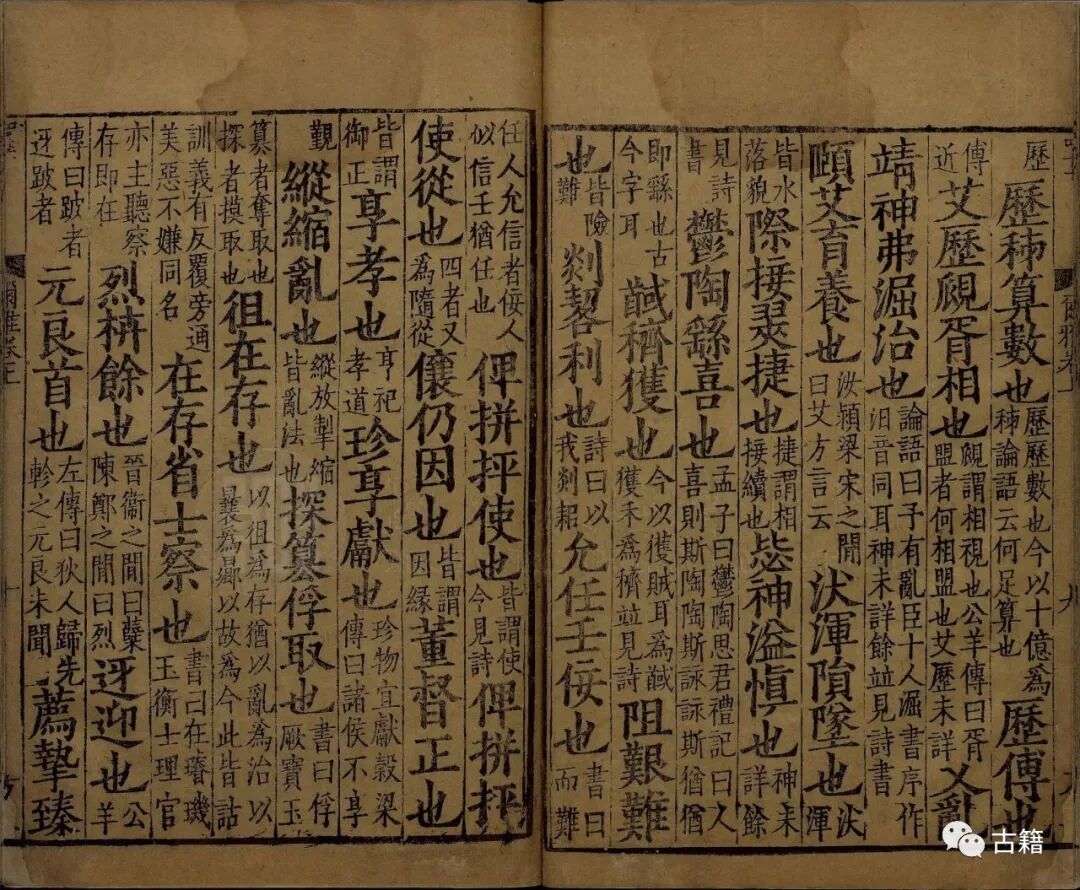 歷 歷秭算數也 歷歷數也今以十億爲秭論語云何足算也 歷傅也
傅近 艾歷覛胥相也 覛謂相視也公羊傳曰胥盟者何相盟也艾歷未詳 乂亂
靖神弗淈治也 論語曰予有亂臣十人淈書序作汩音同耳神未詳餘竝見詩書
頤艾育養也 汝潁梁宋之閒曰艾方言云 汱渾隕墜也 汱渾
皆水落貌 際接翜捷也 捷謂相接續也 毖神溢愼也 神未詳餘
見詩書 鬱陶繇喜也 孟子曰鬱陶思君禮記曰人喜則斯陶陶斯詠詠斯猶猶
即繇也古今字耳 馘穧獲也 今以獲賊耳爲馘獲禾爲穧竝見詩 阻艱難
也 皆險難 剡䂮利也 詩曰以我剡耜 允任壬佞也 書曰而難
任人允信者佞人似信壬猶任也 俾拼抨使也 皆謂使令見詩 俾拼抨
使從也 四者又爲隨從 儴仍因也 皆謂因緣 董督正也
皆謂御正 享孝也 享祀孝道 珍享獻也 珍物宜獻穀梁傳曰諸侯不享
覲 縱縮亂也 縱放掣縮皆亂法也 探篡俘取也 書曰俘厥寶玉
篡者奪取也探者摸取也 徂在存也 以徂爲存猶以亂爲治以曩爲曏以故爲今此皆詁
訓義有反覆旁通美惡不嫌同名 在存省士察也 書曰在璿璣玉衡士理官
亦主聽察存即在 烈枿餘也 晉衛之閒曰蘖陳鄭之閒曰烈 迓迎也 公羊
傳曰跛者迓跛者 元良首也 左傳曰狄人歸先軫之元良未聞 薦摯臻
古籍